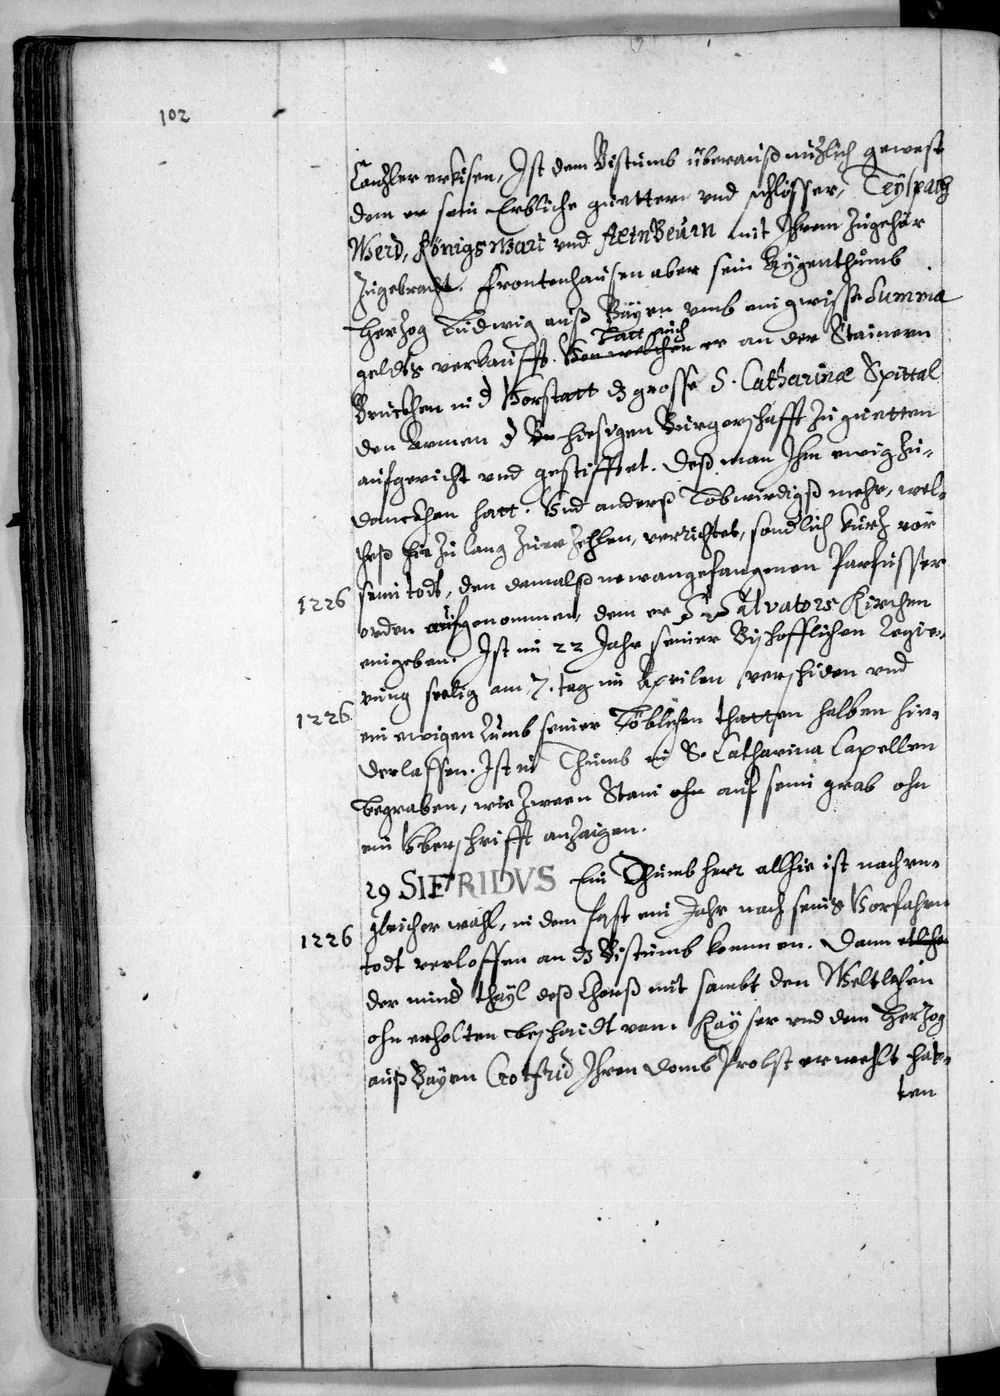 102
Canzler erkisen, Ist dem Bistumb überauß nuzlich gewest
dem er sein Erbliche guetter und schlösser, Teyspach
Werd, Königswart und Aeinbeurn mit Ihrem Zugehör
Zugebracht. Frontenhausen aber sein Aygenthumb
Herzog Ludwig auß Bayrn umb ein gwisse Summa
geldts verkaufft. Von welchen er an der Stainern
hatt auch
Bruckhen in d Vorstatt dz grosse S. Catharinæ Spittal
den Armen d hiesigen Burgerschafft zu guetten
aufgericht und gestifftet. Deß man Ihm ewig zu-
danckhen hatt. Und anderß Lobwirdigß mehr, wel-
cheß hie zu lang zuerzehlen, verrichtet, sondlich kurz vor
seim todt, den damalß newangefangenen Parfusser
1226
orden aufgenommen, dem er S. Salvators Kirchen
eingeben. Ist im 22 Jahr seiner Bischofflichen Regie-
rung seelig am 7. tag im Aprilen verschiden und
1226
ein ewigen Rumb seiner Löblichen thatten halben hin-
derlassen. Ist in Thumb in S. Catharina Capellen
begraben, wie zween Stain ohn auf seim grab ohn
ein Uberschrifft anzaigen.
29 SIFRIDVS Ein Thumbherr allhie ist nach un-
gleicher wahl, in dem fast ein Jahr nach seines Vorfahrn
1226
todt verloffen an dz Bistumb kommen. Dann etliche
der mind thayl deß Chorß mit sambt den Weltlichen
ohn erholten beschaidt vom Kayser und dem Herzog
auß Bayrn Gotfrid Ihren Domb Probst erwehlt hat-
ten